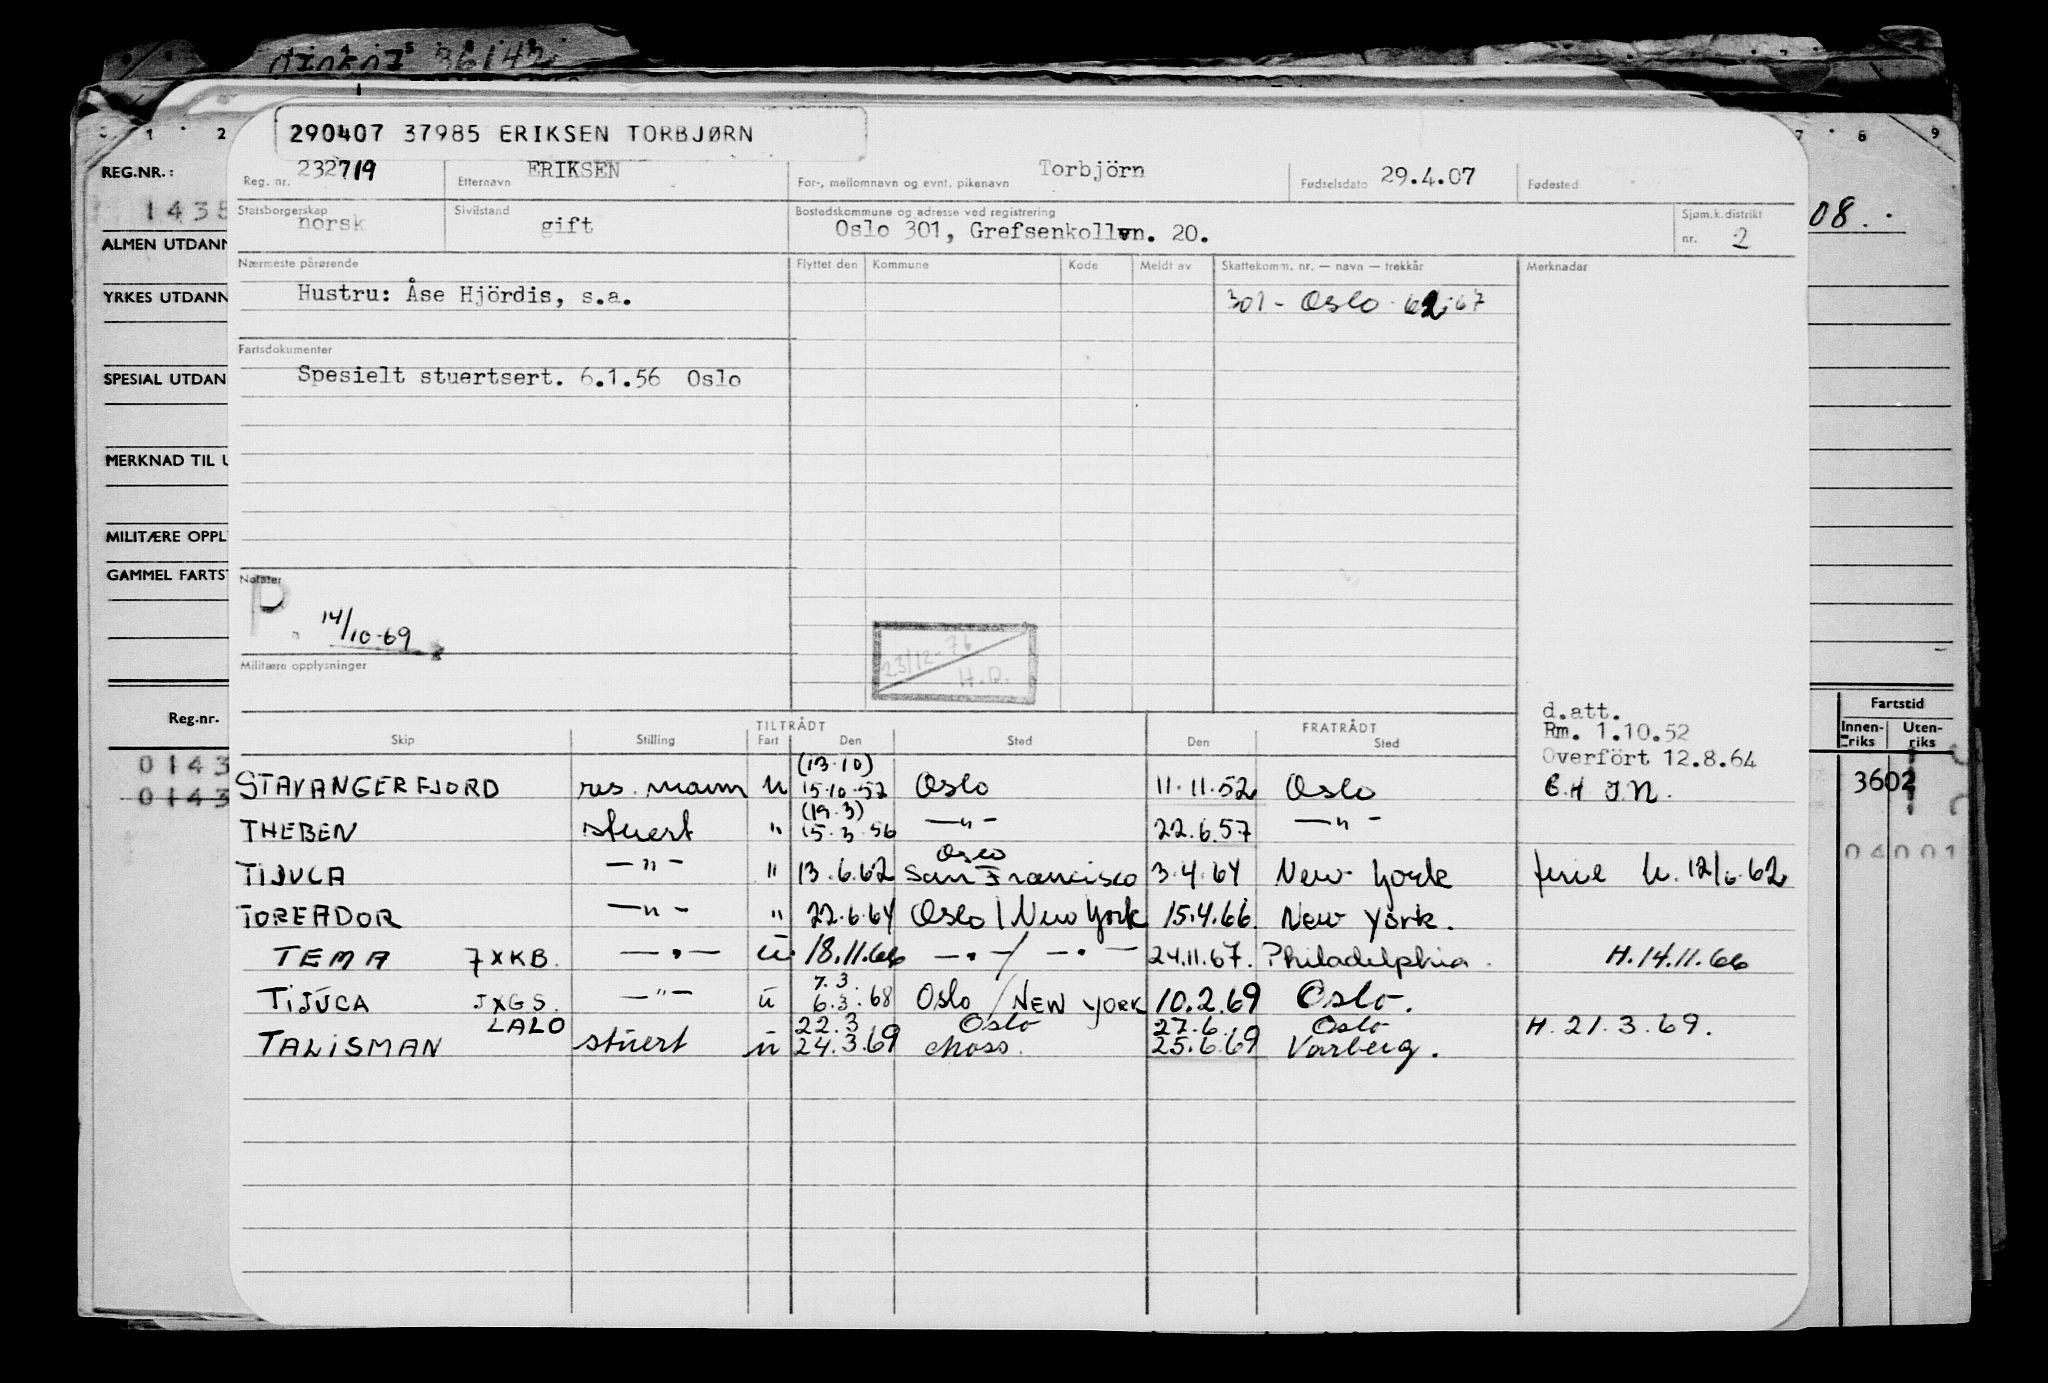 36142
290407 37985 ERIKSEN TORBJØRN
1 2 7 8 9
REG.NR.:
Reg. nr. 232719 Etternavn ERIKSEN For-, mellomnavn og evnt. pikenavn Torbjörn Fødselsdato 29.4.07 Fødested
1438
Statsborgerskap norsk Sivilstand gift Bostedskommune og adresse ved registrering Oslo 301, Grefsenkollvn. 20. Sjøm.k.distrikt nr. 2
08.
ALMEN UTDANN
Nærmeste pårørende Flyttet den Kommune Kode Meldt av Skattekomm. nr. — navn — trekkår Merknader
YRKES UTDANN
Hustru: Åse Hjördis, s.a. 301 - Oslo 62-67
Fartsdokumenter
SPESIAL UTDAN
Spesielt stuertsert. 6.1.56 Oslo
MERKNAD TIL U
MILITÆRE OPPL
GAMMEL FARTST
Notater
P. 14/10-69
23/12-76 H.D.
Militære opplysninger
Reg.nr.
Fartstid
Innen-riks Uten-riks
d.att.
Rm. 1.10.52
Overfört 12.8.64
TILTRÅDT FRATRÅDT
Skip Stilling Fart Den Sted Den Sted
0143
0143
3602
04001
(13.10)
STAVANGERFJORD res. mann u 15.10.52 Oslo 11.11.52 Oslo
(19.3)
THEBEN stuert " 15.3.56 —"— 22.6.57 —"—
Oslo
TIJUCA —"— " 13.6.62 San Francisco 3.4.64 New York ferie 12/6.62
TOREADOR —"— " 22.6.64 Oslo / New York 15.4.66 New York.
TEMA —"— u. 18.11.66 —"—/—"— 24.11.67. Philadelphia. H.14.11.66
7.3.
TIJUCA JXGS. —"— u 6.3.68 Oslo / NEW YORK 10.2.69 Oslo.
LALO 22.3 Oslo 27.6. Oslo H. 21.3.69.
TALISMAN stuert u 24.3.69 Moss. 25.6.69 Varberg.